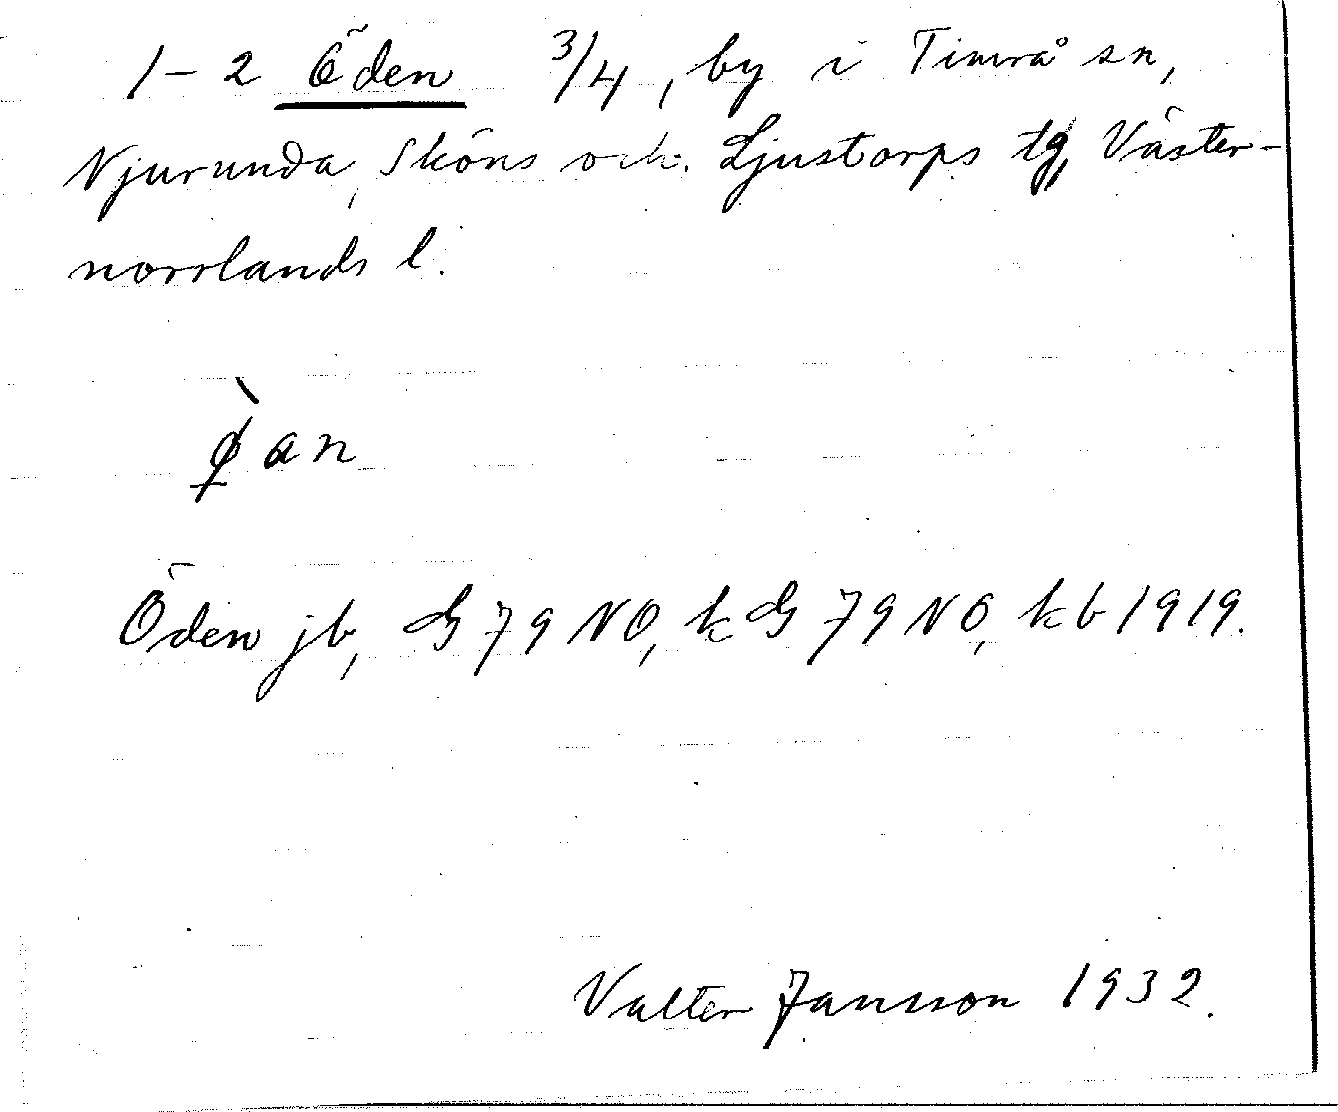 1-2 Öden 3/4, by i Timrå sn,
Njurunda, Sköns och Ljustorps tg, Väster-
norrlands l.
ø̀an
Öden jb, G 79 NO, kG 79 NO, kb 1919.
Valter Jansson 1932.